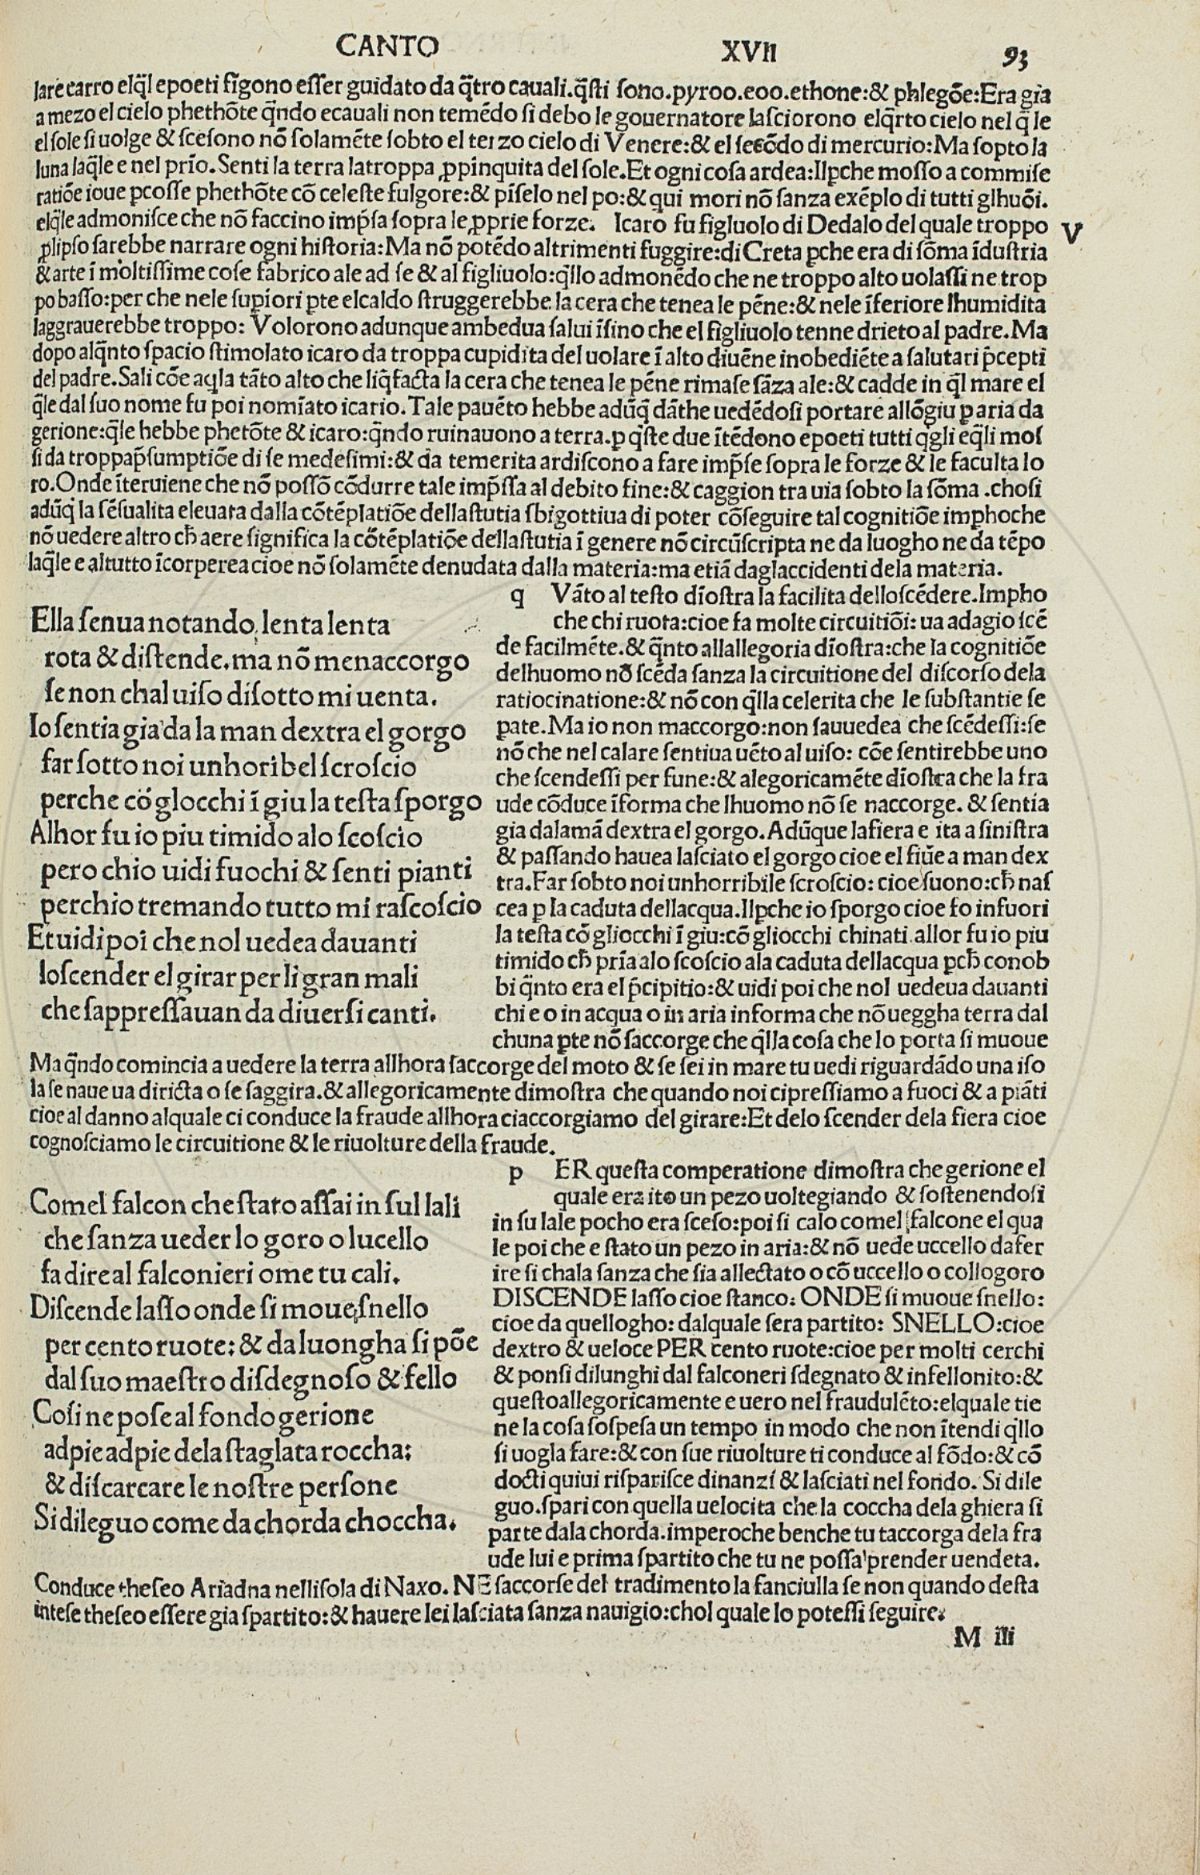 CANTO XVII 93
lare carro elq̄l epoeti fīgono esser guidato da q̄tro cauali.q̄sti sono.pyroo.eoo.ethone:& phlegōe:Era gia
a mezo el cielo phethōte q̄ndo ecauali non temēdo si debo le gouernatore lasciorono elq̄rto cielo nel q̄ le
el sole si uolge & scesono nō solamēte sobto el terzo cielo di Venere:& el secōdo di mercurio:Ma sopto la
luna laq̄le e nel prīo.Senti la terra latroppa ꝓpinquita del sole.Et ogni cosa ardea:Ilꝑche mosso a commise
ratiōe ioue ꝑcosse phethōte cō celeste fulgore:& pīselo nel po:& qui mori nō sanza exēplo di tutti glhuōi.
elq̄le admonisce che nō faccino imp̄sa sopra le ꝓprie forze. Icaro fu figluolo di Dedalo del quale troppo V
ꝓlipso sarebbe narrare ogni historia:Ma nō potēdo altrimenti fuggire:di Creta ꝑche era di sōma īdustria
& arte ī moltissime cose fabrico ale ad se & al figliuolo:q̄llo admonēdo che ne troppo alto uolassi ne trop
po basso:per che nele supiori ꝑte elcaldo struggerebbe la cera che tenea le pēne:& nele īferiore lhumidita
laggrauerebbe troppo: Volorono adunque ambedua salui īsino che el figliuolo tenne drieto al padre.Ma
dopo alq̄nto spacio stimolato icaro da troppa cupidita del uolare ī alto diuēne inobediēte a salutari p̄cepti
del padre.Sali cōe aq̄la tāto alto che liq̄facta la cera che tenea le pēne rimase sāza ale:& cadde in q̄l mare el
q̄le dal suo nome fu poi nomīato icario.Tale pauēto hebbe adūq̄ dāthe uedēdosi portare allōgiu ꝑ aria da
gerione:q̄le hebbe phetōte & icaro:q̄ndo ruinauono a terra.ꝑ q̄ste due ītēdono epoeti tutti q̄gli eq̄li mos
si da troppap̄sumptiōe di se medesimi:& da temerita ardiscono a fare imp̄se sopra le forze & le faculta lo
ro.Onde īteruiene che nō possō cōdurre tale imp̄ssa al debito fine:& caggion tra uia sobto la sōma .chosi
adūq̄ la sēsualita eleuata dalla cōtēplatiōe dellastutia sbigottiua di poter cōseguire tal cognitiōe imphoche
nō uedere altro ch̄ aere significa la cōtēplatiōe dellastutia ī genere nō circūscripta ne da luogho ne da tēpo
laq̄le e altutto īcorperea cioe nō solamēte denudata dalla materia:ma etiā daglaccidenti dela materia.
Ella senua notando lenta lenta
rota & distende.ma nō menaccorgo
se non chal uiso disotto mi uenta.
Io sentia gia da la man dextra el gorgo
far sotto noi unhoribel scroscio
perche cō glocchi ī giu la testa sporgo
Alhor fu io piu timido alo scoscio
pero chio uidi fuochi & senti pianti
perchio tremando tutto mi rascoscio
Et uidi poi che nol uedea dauanti
loscender el girar per li gran mali
che sappressauan da diuersi canti.
q Vāto al testo dīostra la facilita delloscēdere.Impho
che chi ruota:cioe fa molte circuitiōi: ua adagio iscē
de facilmēte.& q̄nto allallegoria dīostra:che la cognitiōe
delhuomo nō scēda sanza la circuitione del discorso dela
ratiocinatione:& nō con q̄lla celerita che le substantie se
ꝑate.Ma io non maccorgo:non sauuedea che scēdessi:se
nō che nel calare sentiua uēto al uiso: cōe sentirebbe uno
che scendessi per fune:& alegoricamēte dīostra che la fra
ude cōduce īforma che lhuomo nō se naccorge. & sentia
gia dalamā dextra el gorgo.Adūque lafiera e ita a sinistra
& passando hauea lasciato el gorgo cioe el fiūe a man dex
tra.Far sobto noi unhorribile scroscio: cioe suono:ch̄ nas
cea ꝑ la caduta dellacqua.Ilꝑche io sporgo cioe fo infuori
la testa cō gliocchi ī giu:cō gliocchi chinati.allor fu io piu
timido ch̄ prīa alo scoscio ala caduta dellacqua ꝑch̄ conob
bi q̄nto era el p̄cipitio:& uidi poi che nol uedeua dauanti
chi e o in acqua o in aria informa che nō ueggha terra dal
chuna ꝑte nō saccorge che q̄lla cosa che lo porta si muoue
Ma q̄ndo comincia a uedere la terra allhora saccorge del moto & se sei in mare tu uedi riguardādo una iso
la se naue ua diricta o se saggira.& allegoricamente dimostra che quando noi cipressiamo a fuoci & a piāti
cioe al danno alquale ci conduce la fraude allhora ciaccorgiamo del girare:Et delo scender dela fiera cioe
cognosciamo le circuitione & le riuolture della fraude.
Comel falcon che stato assai in sul lali
che sanza ueder lo goro o lucello
fa dire al falconieri ome tu cali.
Discende lasso onde si moue snello
per cento ruote: & da luongha si pōe
dal suo maestro disdegnoso & fello
Cosi ne pose al fondo gerione
ad pie ad pie dela staglata roccha:
& discarcare le nostre persone
Si dileguo come da chorda choccha.
p ER questa comperatione dimostra che gerione el
quale era ito un pezo uoltegiando & sostenendosi
in su lale pocho era sceso:poi si calo comel falcone el qua
le poi che e stato un pezo in aria:& nō uede uccello da fer
ire si chala sanza che sia allectato o cō uccello o collogoro
DISCENDE lasso cioe stanco: ONDE si muoue snello:
cioe da quellogho: dalquale sera partito: SNELLO:cioe
dextro & ueloce PER cento ruote:cioe per molti cerchi
& ponsi dilunghi dal falconeri sdegnato & infellonito:&
questoallegoricamente e uero nel fraudulēto:elquale tie
ne la cosa sospesa un tempo in modo che non ītendi q̄llo
si uogla fare:& con sue riuolture ti conduce al fōdo:& cō
docti quiui risparisce dinanzi & lasciati nel fondo. Si dile
guo.spari con quella uelocita che la coccha dela ghiera si
parte dala chorda.imperoche benche tu taccorga dela fra
ude lui e prima spartito che tu ne possa prender uendeta.
Conduce theseo Ariadna nellisola di Naxo. NE saccorse del tradimento la fanciulla se non quando desta
intese theseo essere gia spartito:& hauere lei lasciata sanza nauigio:chol quale lo potessi seguire.
M iii